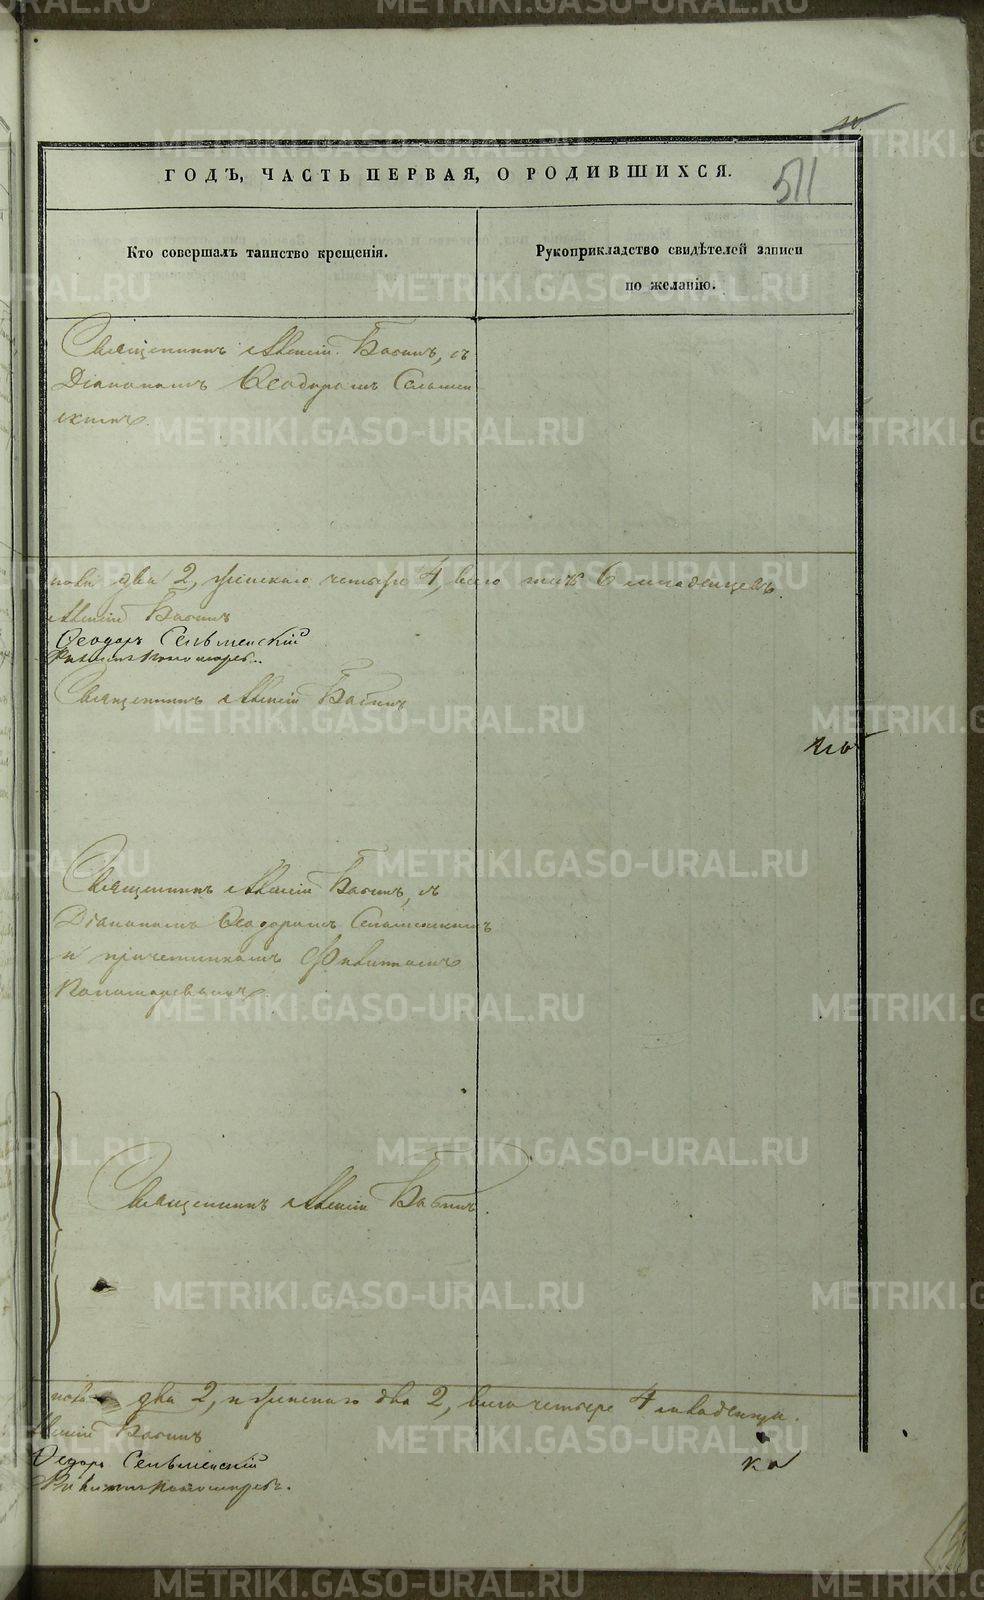 ГОДЪ, ЧАСТЬ ПЕРВАЯ, О РОДИВШИХСЯ.
511
Кто совершалъ таинство крещенія.
Рукоприкладство свидѣтелей записи
по желанію.
Священникъ Алексій Бабинъ, съ
Діакономъ Ѳеодоромъ Сельмен
скимъ
два 2, женскаго четыре 4, всего 6 младенцевъ.
Алексій Бабинъ
Ѳеодоръ Сельменскій
Пономаревъ.
Священникъ Алексій Бабинъ
Священникъ Алексій Бабинъ, съ
Діакономъ Ѳеодоромъ Сельменскимъ
и причетникомъ
Пономаревымъ
Священникъ Алексій Бабинъ.
два 2, и женскаго два 2, всего четыре 4 младенца.
Бабинъ
Ѳедоръ Сельменскій
Пономаревъ.
METRIKI.GASO-URAL.RU